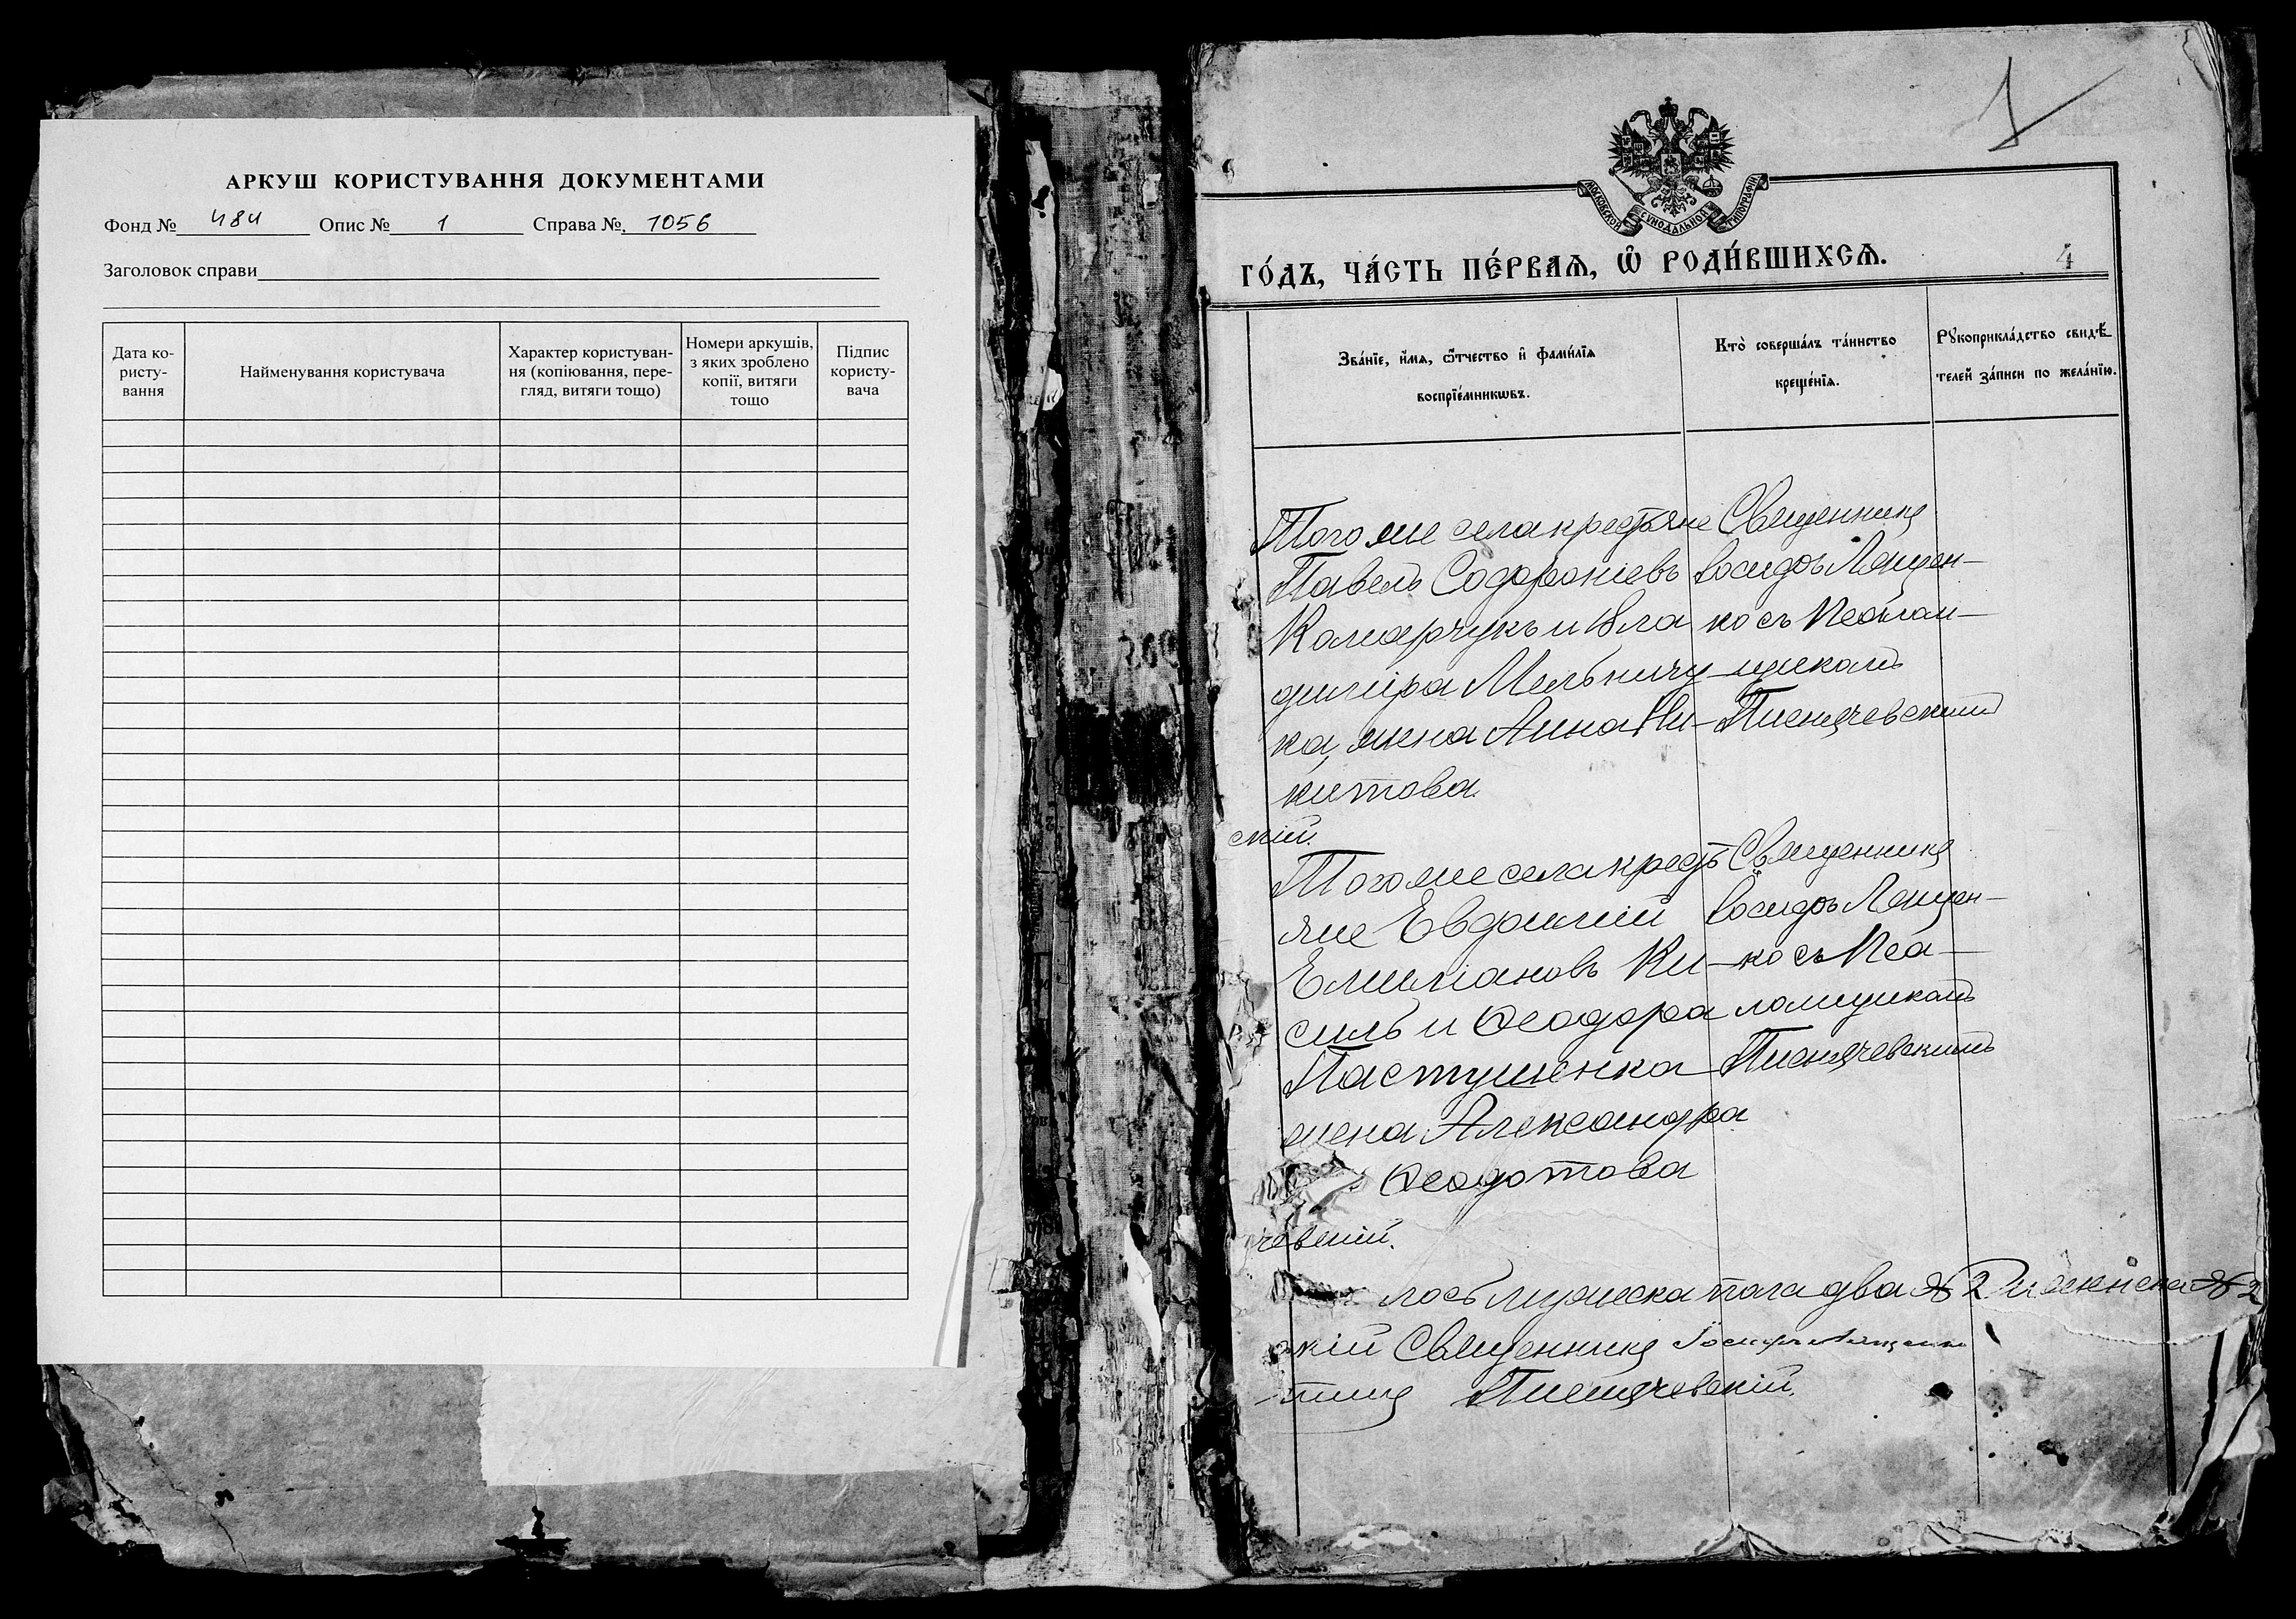 АРКУШ КОРИСТУВАННЯ ДОКУМЕНТАМИ
Фонд № 484 Опис № 1 Справа №. 1056
Заголовок справи
Дата ко-
ристу-
вання
Найменування користувача
Характер користуван-
ня (копіювання, пере-
гляд, витяги тощо)
Номери аркушів,
з яких зроблено
копії, витяги
тощо
Підпис
користу-
вача
1
МОСКОВСКОЙ СѴНОДАЛЬНОЙ ТИПОГРАФІИ
ГО́ДЪ, ЧА́СТЬ ПЕ́РВАѦ, Ѽ РОДИ́ВШИХСѦ.
4
Зва́нїе, и҆́мѧ, ѻ҆́тчество и҆ фами́лїѧ
воспрїе́мникѡвъ.
Кто̀ соверша́лъ та́инство
креще́нїѧ.
Рꙋкоприкла́дство свидѣ́-
телей за́писи по жела́нїю.
Того же села крестьяне
Павелъ Софроніевъ
Комарчукъ и Вла
диміра Мельничу
ка, жена Анна Ни-
китова
Священникъ
Іосифъ Лящен-
ко съ Псалом-
щикомъ
скій.
Того же села кресть
яне Евфимій
Емиліановъ Ки-
силь и Ѳеодора
Пастушенка
жена Александра
Ѳеодотова
Священникъ
Іосифъ Лящен-
ко съ Пса-
ломщикомъ
чевскій.
лось мужеска пола два № 2 и женска № 2
скій Священникъ Іосифъ Лященко